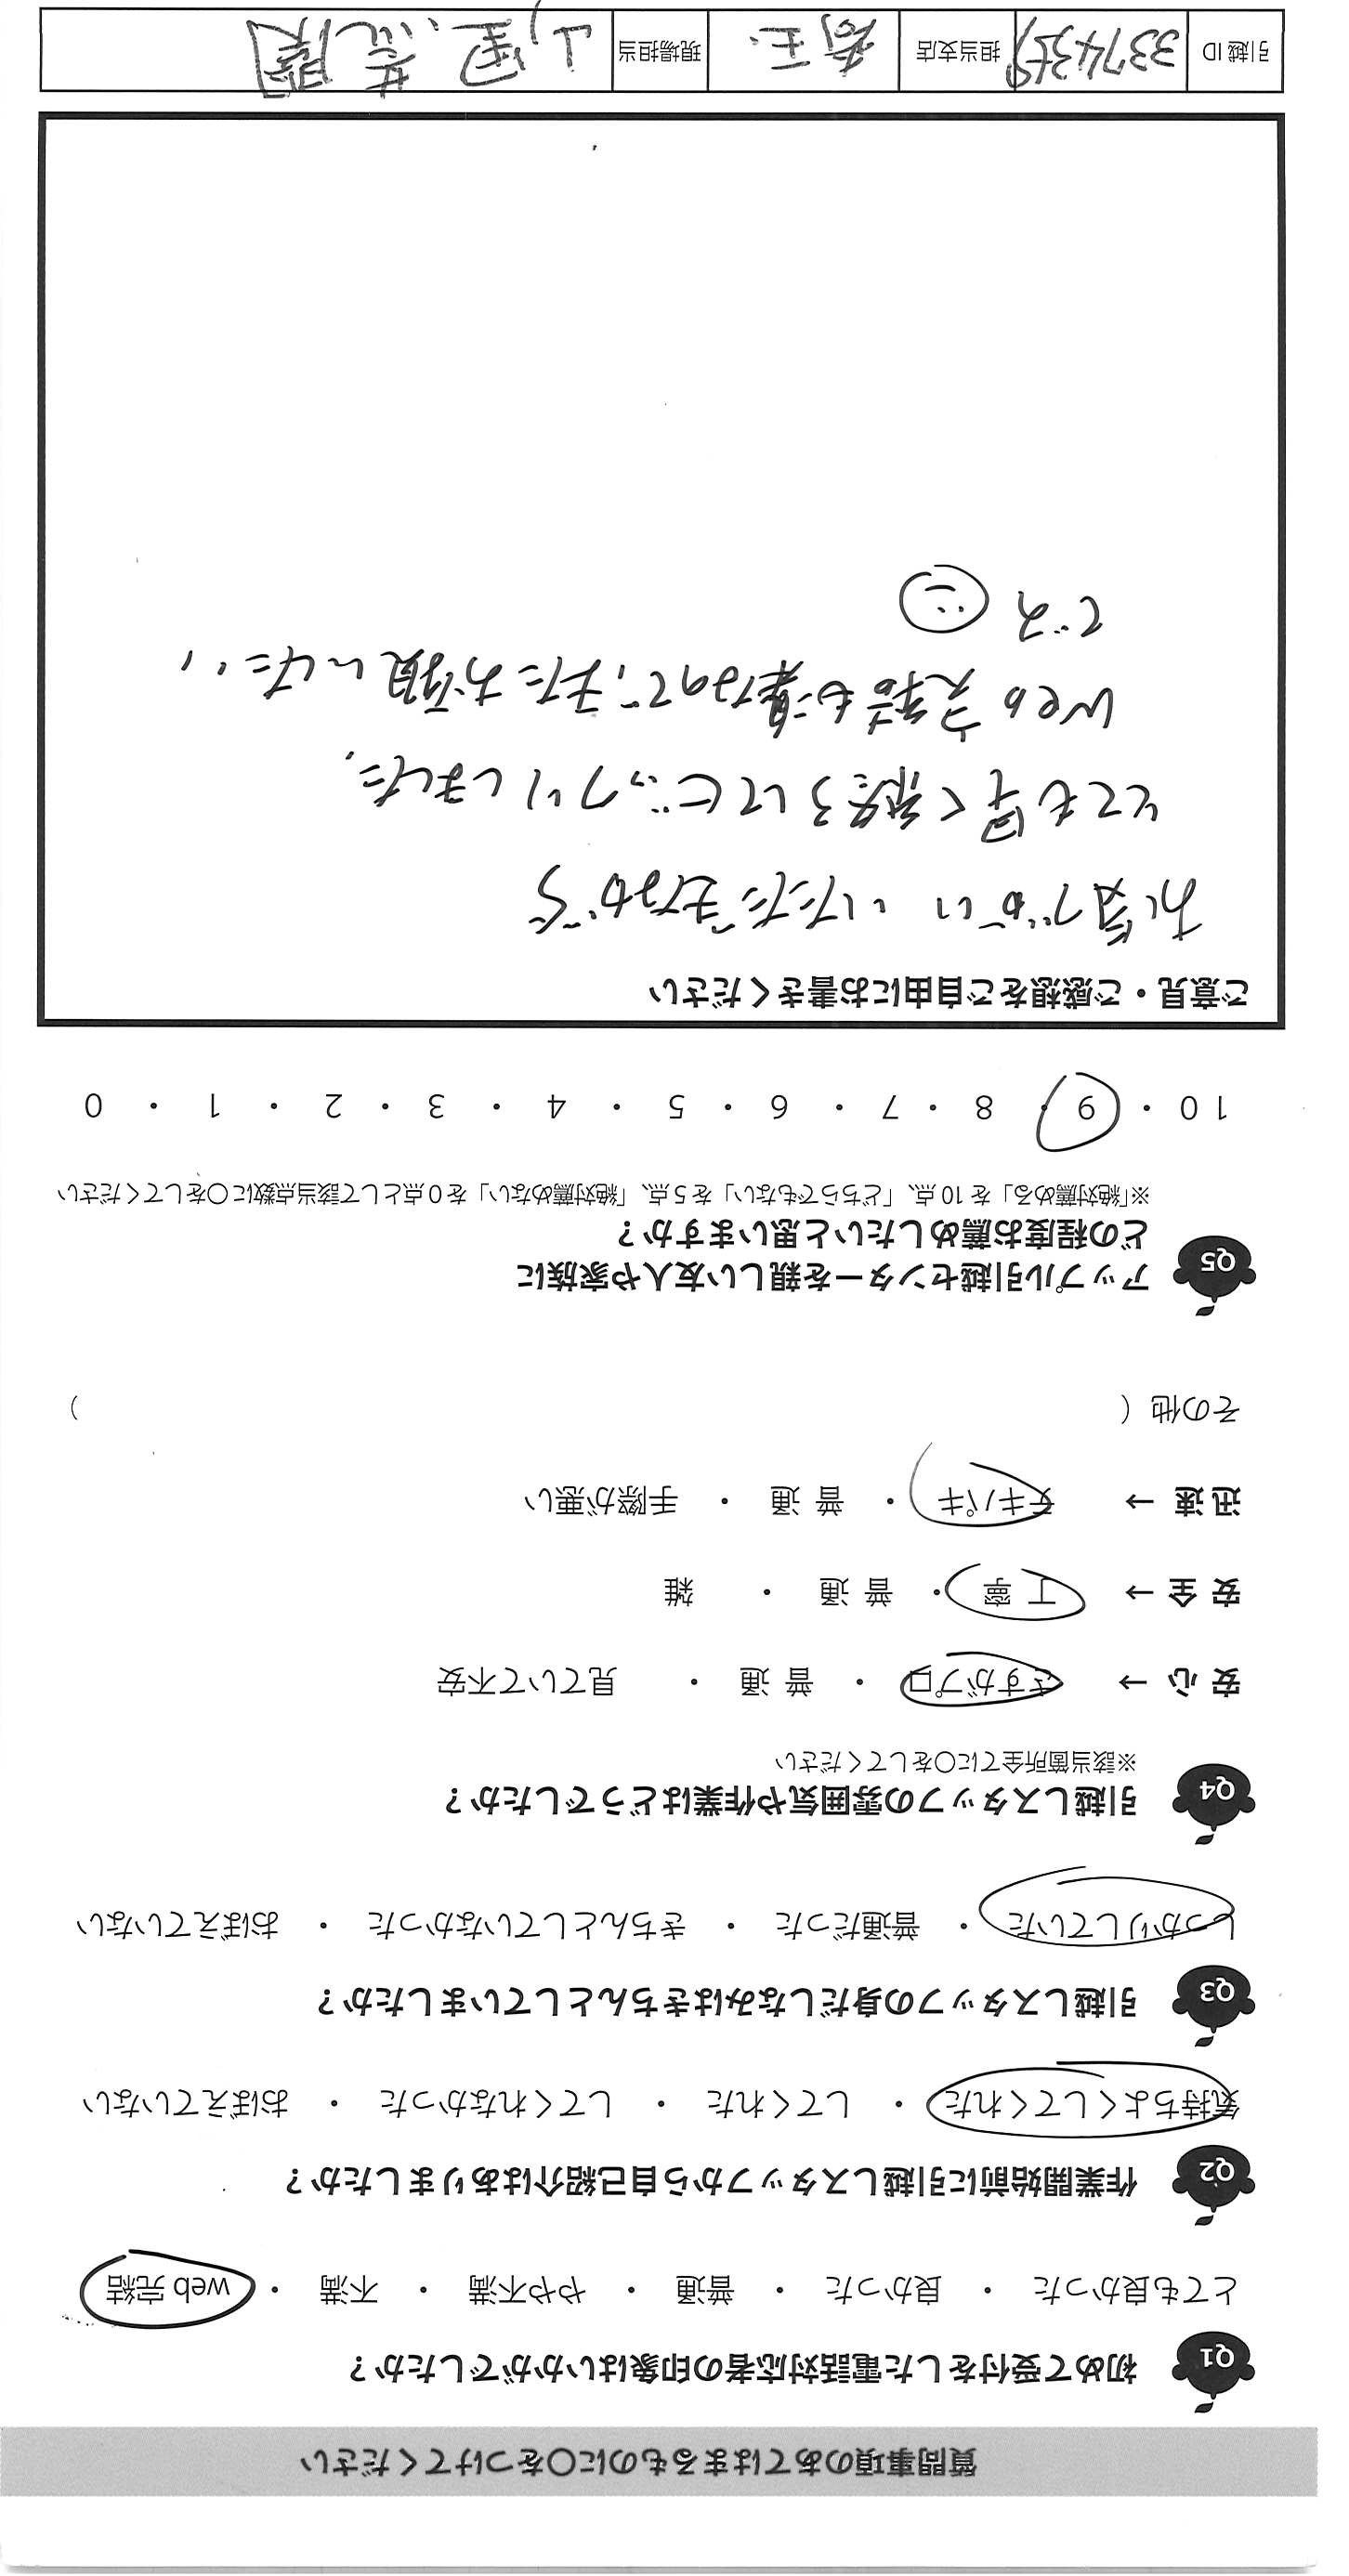 質問事項のあてはまるものに〇をつけてください
Q1 初めて受付をした電話対応者の印象はいかがでしたか？
とても良かった ・ 良かった ・ 普通 ・ やや不満 ・ 不満 ・ web 完結
Q2 作業開始前に引越しスタッフから自己紹介はありましたか？
気持ちよくしてくれた ・ してくれた ・ してくれなかった ・ おぼえていない
Q3 引越しスタッフの身だしなみはきちんとしていましたか？
しっかりしていた ・ 普通だった ・ きちんとしていなかった ・ おぼえていない
Q4 引越しスタッフの雰囲気や作業はどうでしたか？
※該当箇所全てに〇をしてください
安 心 → さすがプロ ・ 普 通 ・ 見ていて不安
安 全 → 丁 寧 ・ 普 通 ・ 雑
迅 速 → テキパキ ・ 普 通 ・ 手際が悪い
その他 （ ）
Q5 アップル引越センターを親しい友人や家族に
どの程度お薦めしたいと思いますか？
※「絶対薦める」を 10 点、「どちらでもない」を 5 点、「絶対薦めない」を 0 点として該当点数に〇をしてください
10 ・ 9 ・ 8 ・ 7 ・ 6 ・ 5 ・ 4 ・ 3 ・ 2 ・ 1 ・ 0
ご意見・ご感想をご自由にお書きください
お気づかい いただきながら
とても早く終ってビックリしました。
Web完結も楽なので、またお願いしたい
です
引越 ID 担当支店 埼玉 現場担当